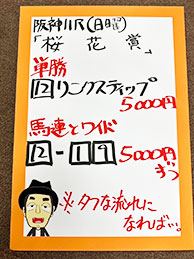 阪神11R(日曜)
「桜花賞」
単勝
12リンクスティップ
5000円
馬連とワイド
12-19
5000円
ずつ
※タフな流れに
なれば…。